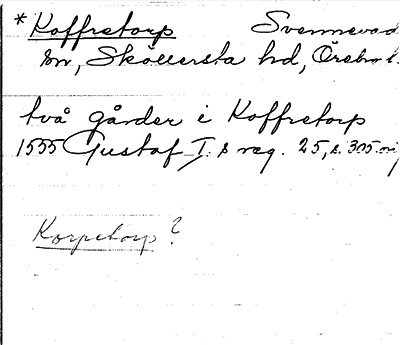 * Koffretorp Svennevad
sn, Sköllersta hd, Örebro l.
två gårder i Koffretorp
1555 Gustaf I:s reg. 25, s. 305
Korpetorp?